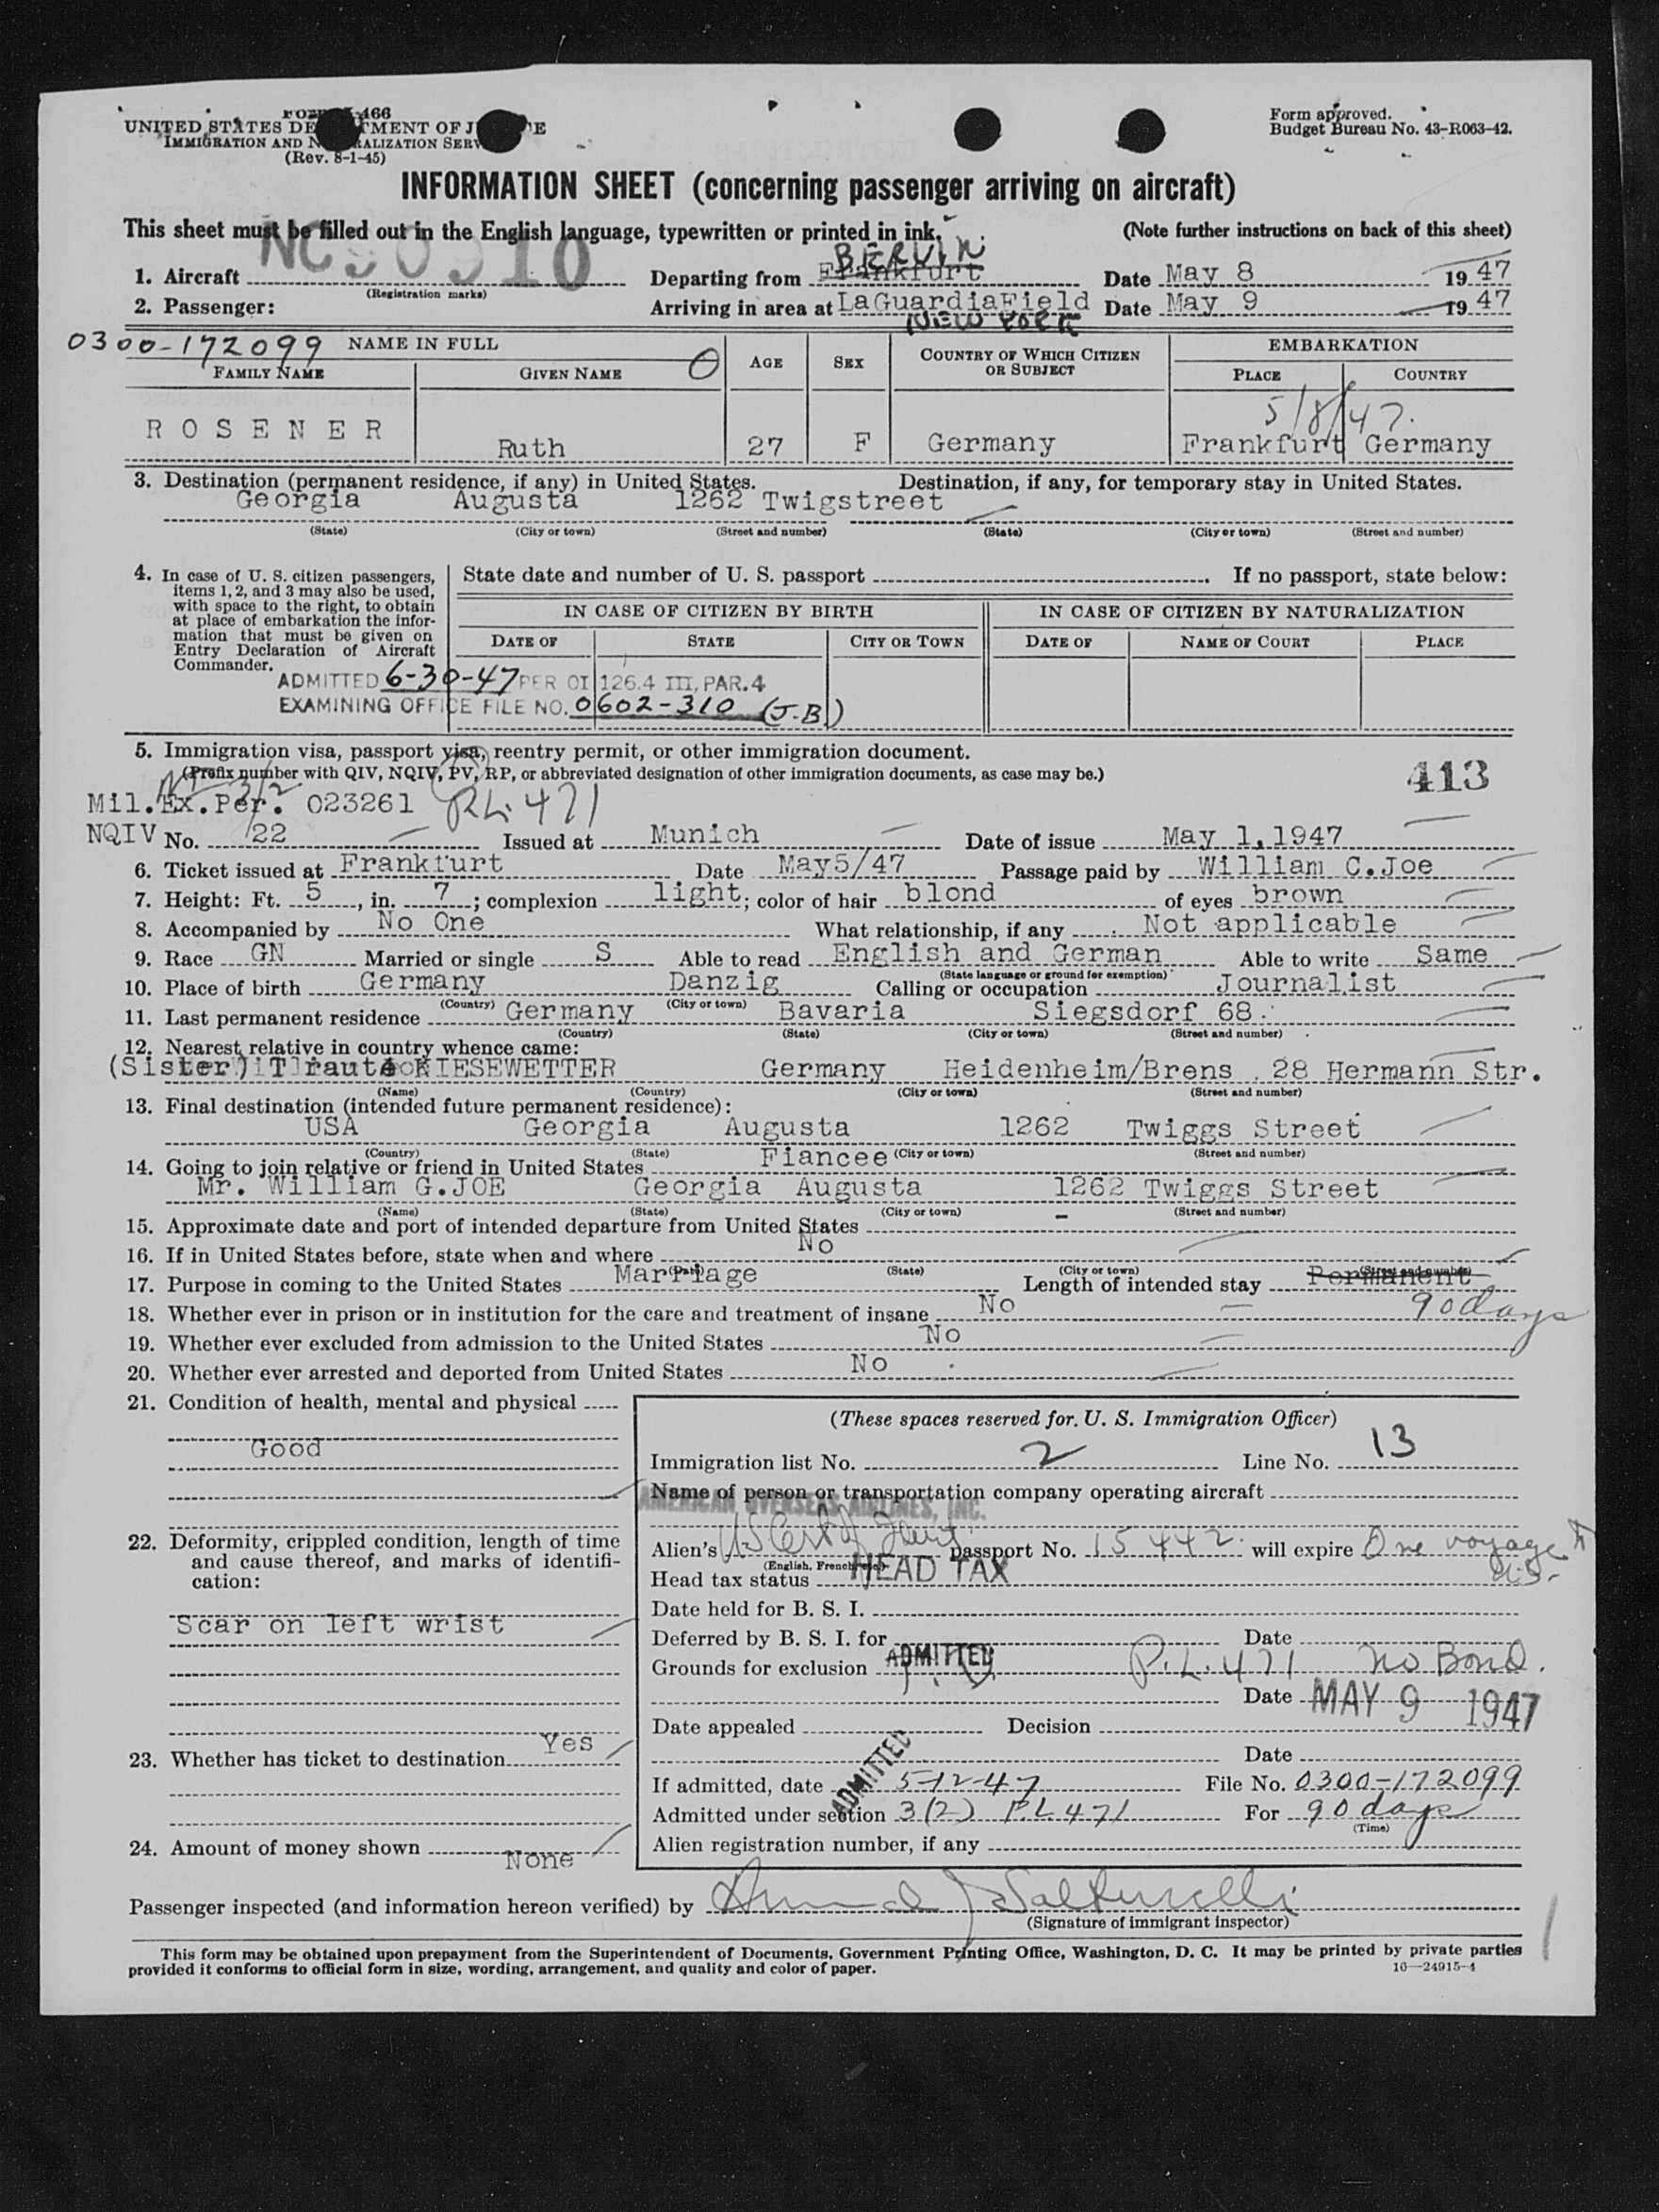 FORM I-466
UNITED STATES DEPARTMENT OF JUSTICE
IMMIGRATION AND NATURALIZATION SERVICE
(Rev. 8-1-45)
Form approved.
Budget Bureau No. 43-R063-42.
INFORMATION SHEET (concerning passenger arriving on aircraft)
This sheet must be filled out in the English language, typewritten or printed in ink.
(Note further instructions on back of this sheet)
BERLIN
1. Aircraft NC90910 Departing from Frankfurt Date May 8 1947
(Registration marks)
2. Passenger: Arriving in area at LaGuardiaField Date May 9 1947
NEW YORK
0300-172099 NAME IN FULL
FAMILY NAME GIVEN NAME AGE SEX COUNTRY OF WHICH CITIZEN OR SUBJECT EMBARKATION
PLACE COUNTRY
5/8/47.
ROSENER Ruth 27 F Germany Frankfurt Germany
3. Destination (permanent residence, if any) in United States. Destination, if any, for temporary stay in United States.
Georgia Augusta 1262 Twigstreet
(State) (City or town) (Street and number) (State) (City or town) (Street and number)
4. In case of U. S. citizen passengers, items 1, 2, and 3 may also be used, with space to the right, to obtain at place of embarkation the information that must be given on Entry Declaration of Aircraft Commander.
State date and number of U. S. passport . If no passport, state below:
IN CASE OF CITIZEN BY BIRTH IN CASE OF CITIZEN BY NATURALIZATION
DATE OF STATE CITY OR TOWN DATE OF NAME OF COURT PLACE
ADMITTED 6-30-47 PER OI 126.4 III, PAR. 4
EXAMINING OFFICE FILE NO. 0602-310 (J.B.)
5. Immigration visa, passport visa, reentry permit, or other immigration document.
(Prefix number with QIV, NQIV, PV, RP, or abbreviated designation of other immigration documents, as case may be.)
413
Mil.Ex.Per. 023261 P.L. 471
NQIV No. 22 Issued at Munich Date of issue May 1, 1947
6. Ticket issued at Frankfurt Date May5/47 Passage paid by William C.Joe
7. Height: Ft. 5, in. 7; complexion light; color of hair blond of eyes brown
8. Accompanied by No One What relationship, if any Not applicable
9. Race GN Married or single S Able to read English and German Able to write Same
(State language or ground for exemption)
10. Place of birth Germany Danzig Calling or occupation Journalist
(Country) (City or town)
11. Last permanent residence Germany Bavaria Siegsdorf 68.
(Country) (State) (City or town) (Street and number)
12. Nearest relative in country whence came:
(Sister) Traute KIESEWETTER Germany Heidenheim/Brens . 28 Hermann Str.
(Name) (Country) (City or town) (Street and number)
13. Final destination (intended future permanent residence):
USA Georgia Augusta 1262 Twiggs Street
(Country) (State) (City or town) (Street and number)
14. Going to join relative or friend in United States Fiancee
Mr. William G.JOE Georgia Augusta 1262 Twiggs Street
(Name) (State) (City or town) (Street and number)
15. Approximate date and port of intended departure from United States -
16. If in United States before, state when and where No
(Date) (State) (City or town) (Street and number)
17. Purpose in coming to the United States Marriage Length of intended stay Permanent
90 days
18. Whether ever in prison or in institution for the care and treatment of insane No
19. Whether ever excluded from admission to the United States No
20. Whether ever arrested and deported from United States No
21. Condition of health, mental and physical
Good
22. Deformity, crippled condition, length of time and cause thereof, and marks of identification:
Scar on left wrist
23. Whether has ticket to destination Yes
24. Amount of money shown None
(These spaces reserved for U. S. Immigration Officer)
Immigration list No. 2 Line No. 13
Name of person or transportation company operating aircraft
AMERICAN OVERSEAS AIRLINES, INC.
Alien's US Cert of Ident. passport No. 15442. will expire One voyage to U.S.
(English, French, etc.)
Head tax status HEAD TAX
Date held for B. S. I.
Deferred by B. S. I. for Date
Grounds for exclusion ADMITTED P.L. 471 no Bond.
Date MAY 9 1947
Date appealed Decision
Date
If admitted, date ADMITTED 5-12-47 File No. 0300-172099
Admitted under section 3(2) P.L 471 For 90 days
(Time)
Alien registration number, if any
Passenger inspected (and information hereon verified) by
(Signature of immigrant inspector)
This form may be obtained upon prepayment from the Superintendent of Documents, Government Printing Office, Washington, D. C. It may be printed by private parties
provided it conforms to official form in size, wording, arrangement, and quality and color of paper.
16—24915-4